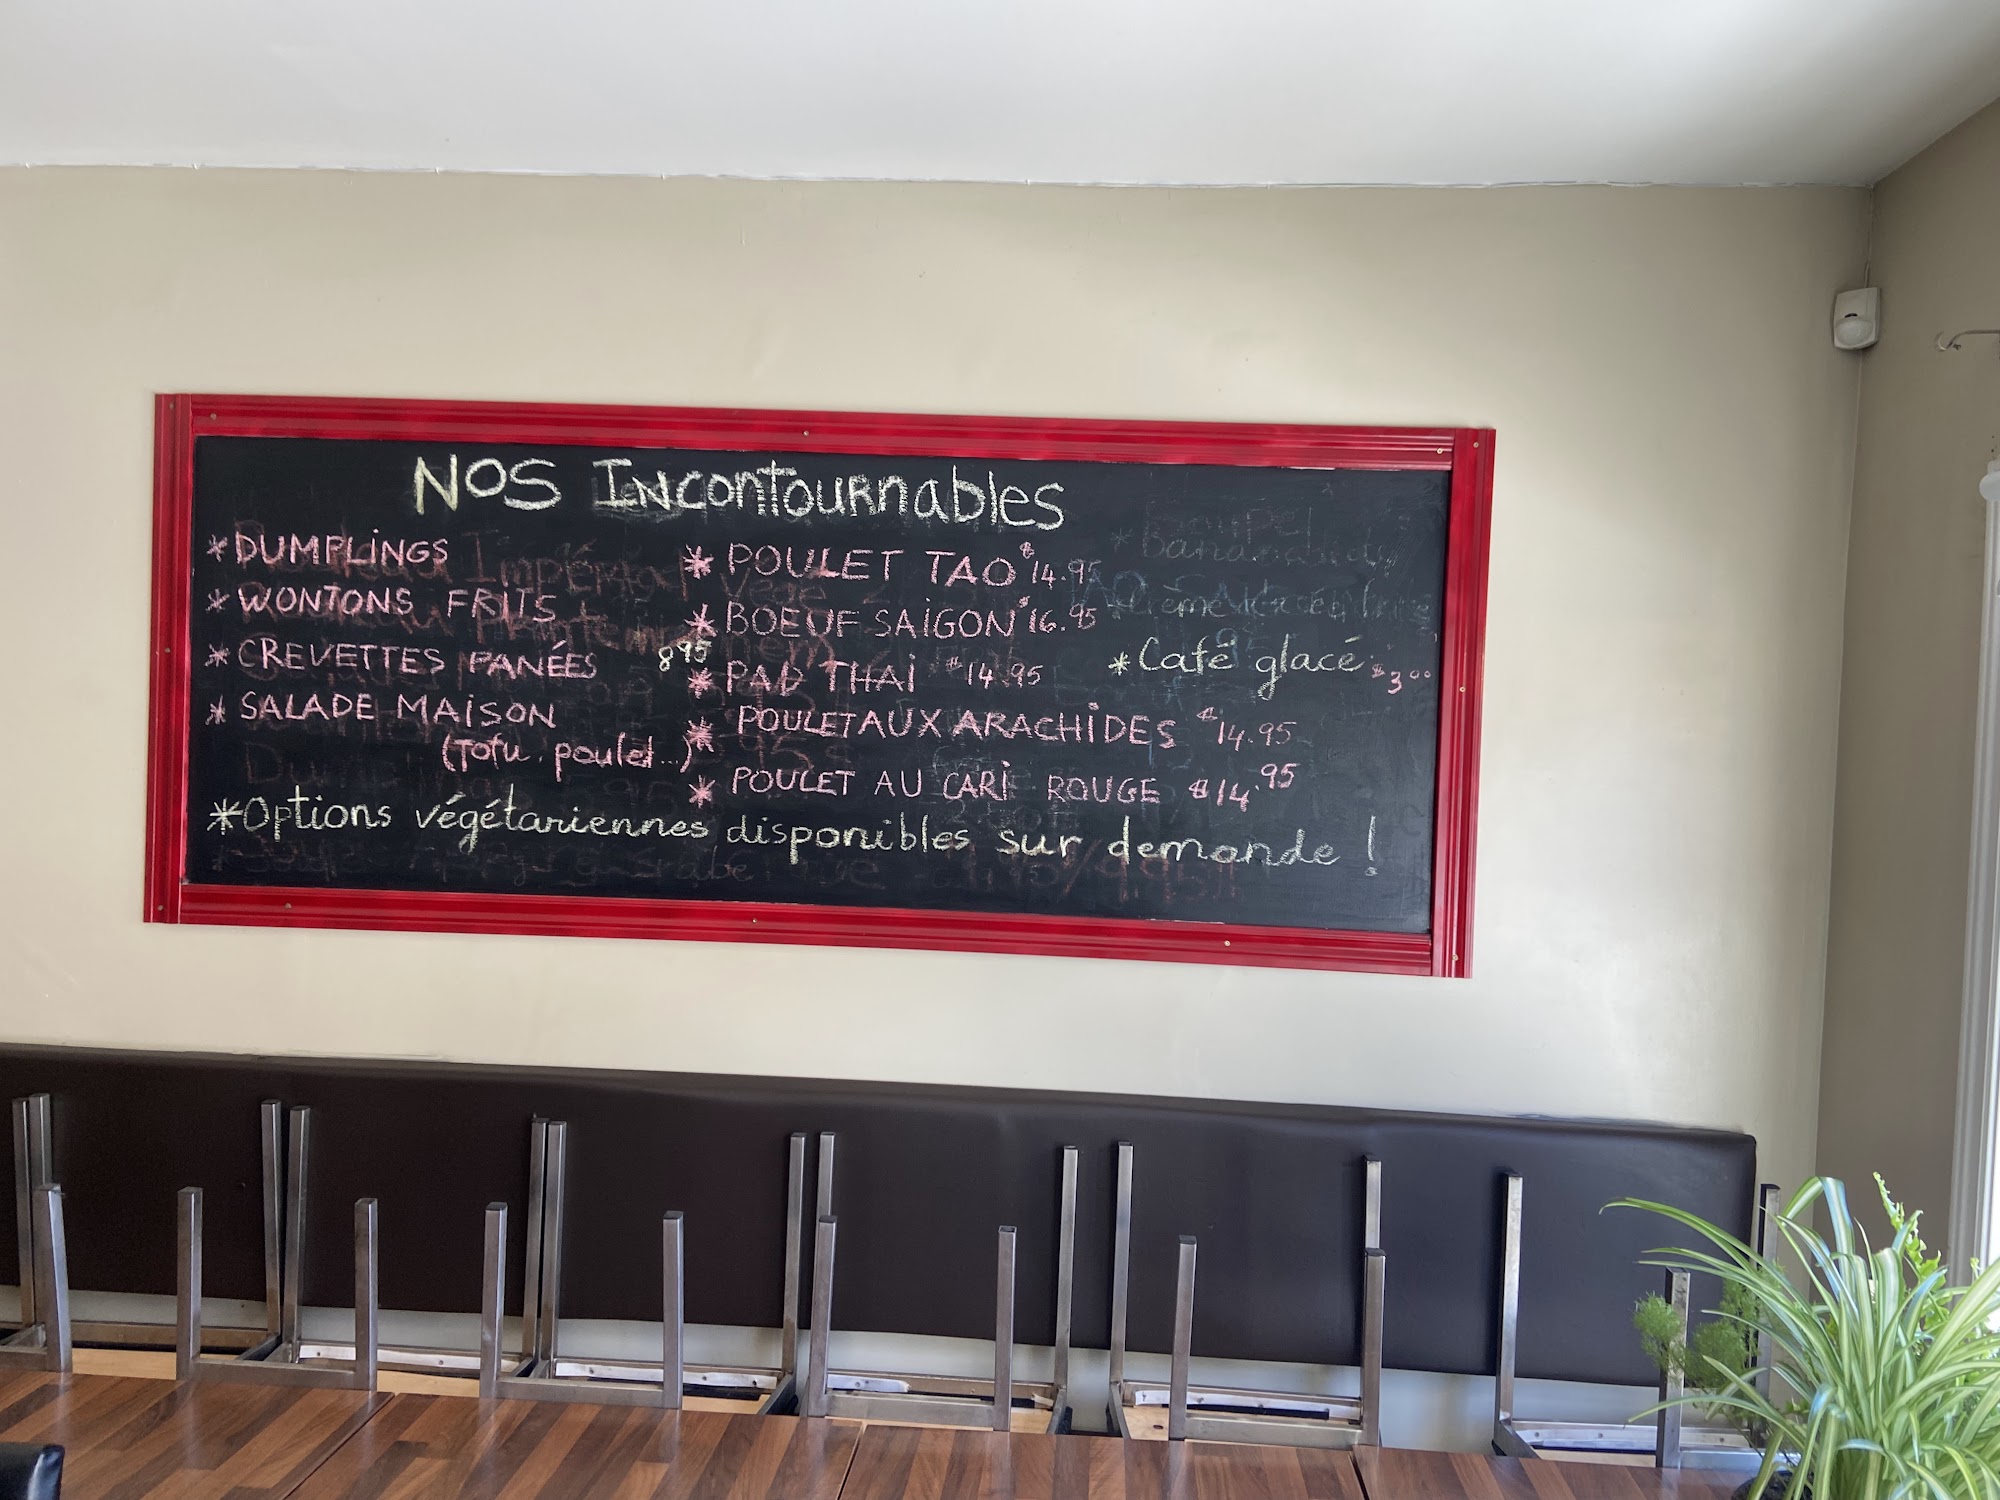 NOS INCONTOURNABLES
* DUMPLINGS
* WONTONS FRITS
* CREVETTES PANÉES 8 95
* SALADE MAISON
(Tofu, poulet...)
* POULET TAO $14.95
* BOEUF SAIGON $16.95
* PAD THAI $14.95
* POULET AUX ARACHIDES $14.95
* POULET AU CARI ROUGE $14.95
* Café glacé $3.00
* Options végétariennes disponibles sur demande !